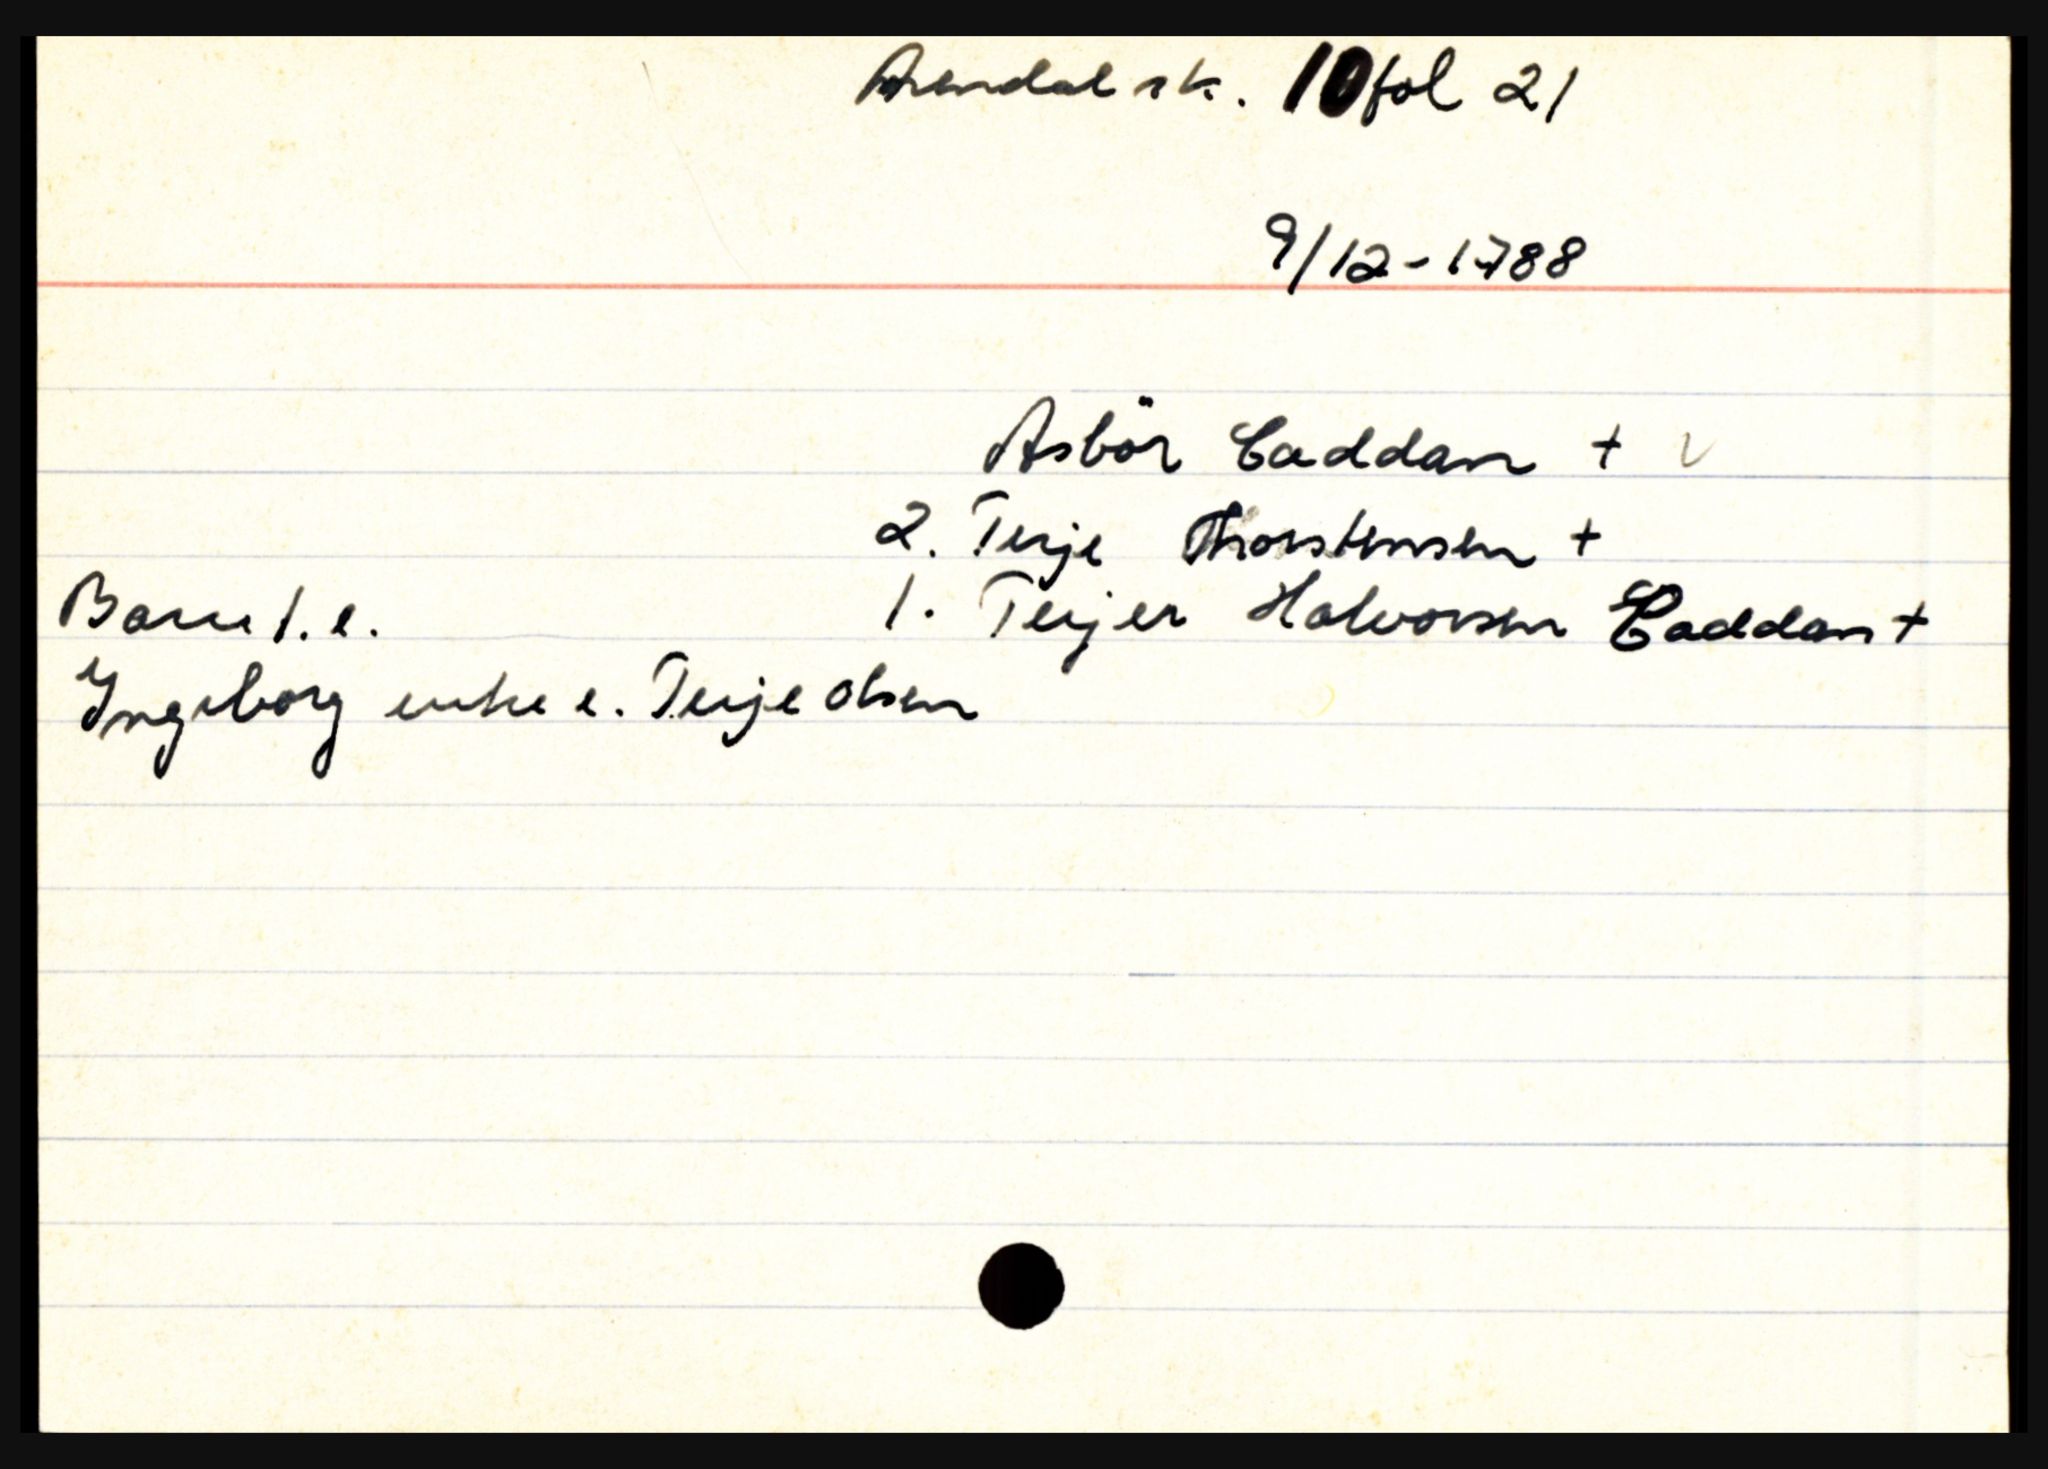 Arendal sk. 10 fol 21
9/12-1788
Asbör Caddam +
2. Terje Thorstensen +
Barn 1. e. 1. Terjer Halvorsen Caddam +
Ingeborg enke e. Terje Olsen